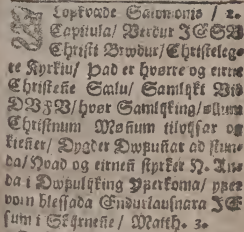 J Lopkvæde Salomonis / 2.
Capitula / Verdur JESU
Christi Brwdur / Christeleg-
re Kyrkiu / Þad er hvørre og eirne
Christenne Sælu / Samlykt Vid
DVFV / hvør Samlyking / øllum
Christnum Mønnum tilvijsar og
kiener / Dygder Dwpunar ad stun-
da / Hvad og eirnen styrker H. An-
da i Dwpulyking Yperkoma / yper
vorn blessada Endurlausnara JE-
sum i Skyrnenne / Matth. 3.